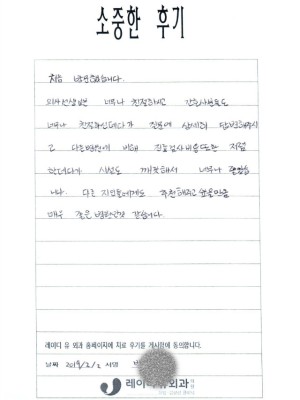 소중한 후기
처음 방문했습니다.
의사선생님은 너무나 친절하시고 간호사분들도
너무나 친절하신데다가 질문에 상세히 답변해주시
고 다른병원에 비해 진료검사비용또한 저렴
하더라구 시설도 깨끗해서 너무나 좋았습
니다. 다른 지인들에게도 추천해주고 싶을만큼
매우 좋은 병원인것 같습니다.
레이디 유 외과 홈페이지에 치료 후기를 게시함에 동의합니다.
날짜 2018/2/2 서명
레이디유외과